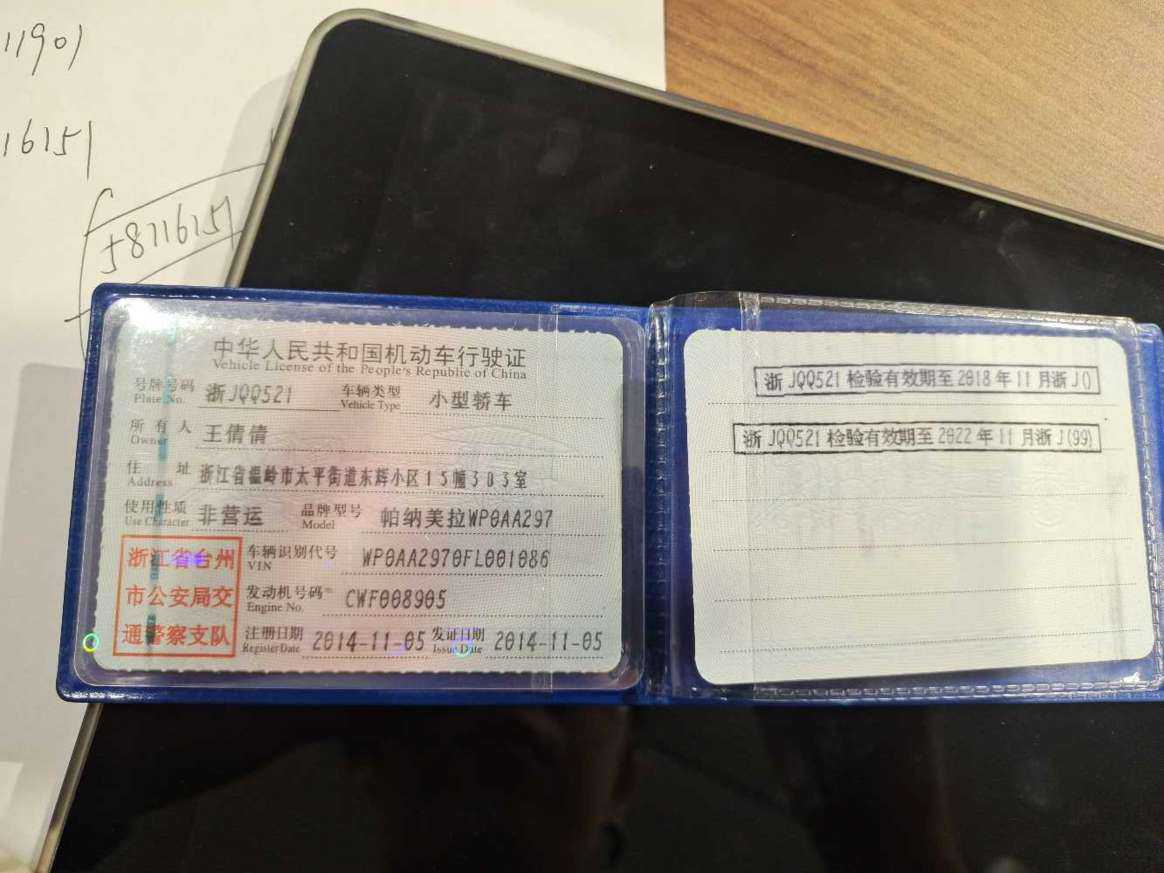 11901
16151
58116151
中华人民共和国机动车行驶证
Vehicle License of the People's Republic of China
号牌号码 浙JQQ521 车辆类型 小型轿车
Plate No. Vehicle Type
所有人 王倩倩
Owner
住址 浙江省温岭市太平街道东辉小区15幢303室
Address
使用性质 非营运 品牌型号 帕纳美拉WP0AA297
Use Character Model
浙江省台州
市公安局交
通警察支队
车辆识别代号 WP0AA2970FL001086
VIN
发动机号码 CWF008905
Engine No.
注册日期 2014-11-05 发证日期 2014-11-05
Register Date Issue Date
浙JQQ521检验有效期至2018年11月浙J()
浙JQQ521检验有效期至2022年11月浙J(99)